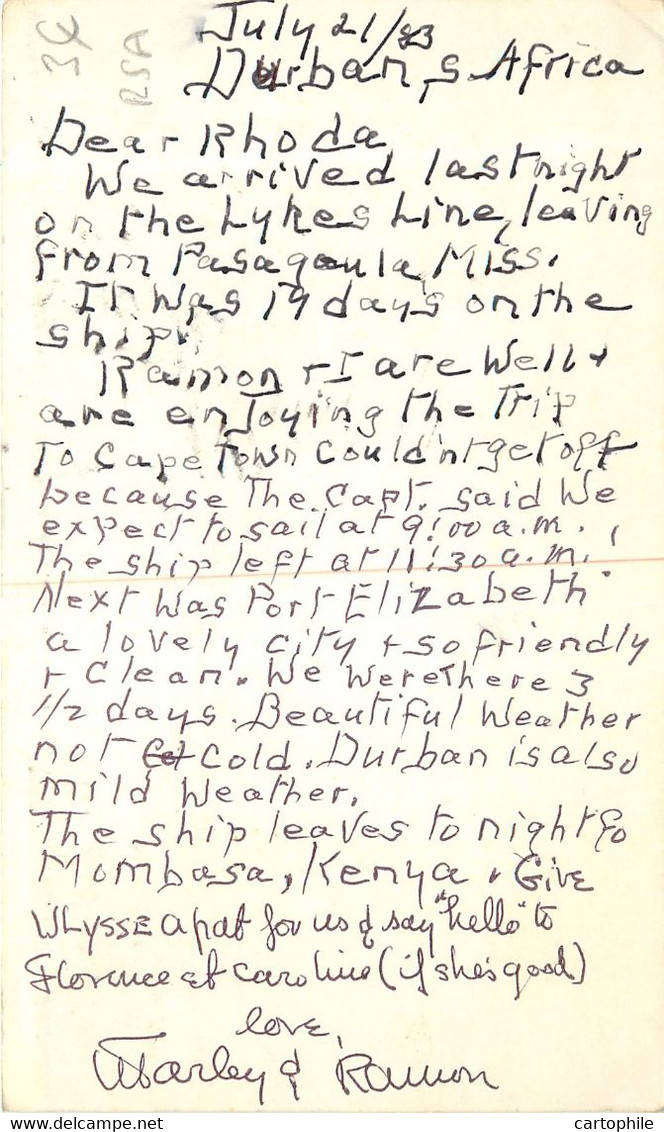 3€
RSA
July 21/83
Durban, S. Africa
Dear Rhoda
We arrived last night
on the Lykes Line, leaving
from Pasagoula, Miss.
It was 19 days on the
ship.
Ramon + I are well +
are enjoying the Trip
To Cape Town couldn't get off
because The Capt. said We
expect to sail at 9:00 a.m.,
The ship left at 11:30 a.m.!
Next was Port Elizabeth
a lovely city + so friendly
+ clean. We were There 3
1/2 days. Beautiful Weather
not cold. Durban is also
mild weather.
The ship leaves tonight fo
Mombasa, Kenya. Give
Ulysse a pat for us & say "hello" to
Florence et Caroline (if she's good)
love,
Marley & Ramon
cartophile